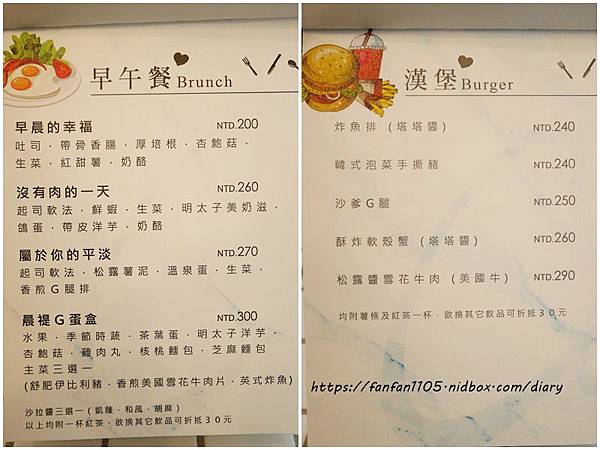 早午餐 Brunch
早晨的幸福 NTD.200
吐司．帶骨香腸．厚培根．杏鮑菇．
生菜．紅甜薯．奶酪
沒有肉的一天 NTD.260
起司軟法．鮮蝦．生菜．明太子美奶滋．
鴿蛋．帶皮洋芋．奶酪
屬於你的平淡 NTD.270
起司軟法．松露薯泥．溫泉蛋．生菜．
香煎G腿排
晨禔G蛋盒 NTD.300
水果．季節時蔬．茶葉蛋．明太子洋芋．
杏鮑菇．雞肉丸．核桃麵包．芝麻麵包
主菜三選一
(舒肥伊比利豬．香煎美國雪花牛肉片．英式炸魚)
沙拉醬三選一 (凱薩．和風．胡麻)
以上均附一杯紅茶．欲換其它飲品可折抵30元
漢堡 Burger
炸魚排 (塔塔醬) NTD.240
韓式泡菜手撕豬 NTD.240
沙爹G腿 NTD.250
酥炸軟殼蟹 (塔塔醬) NTD.260
松露醬雪花牛肉 (美國牛) NTD.290
均附薯條及紅茶一杯．欲換其它飲品可折抵30元
https://fanfan1105.nidbox.com/diary